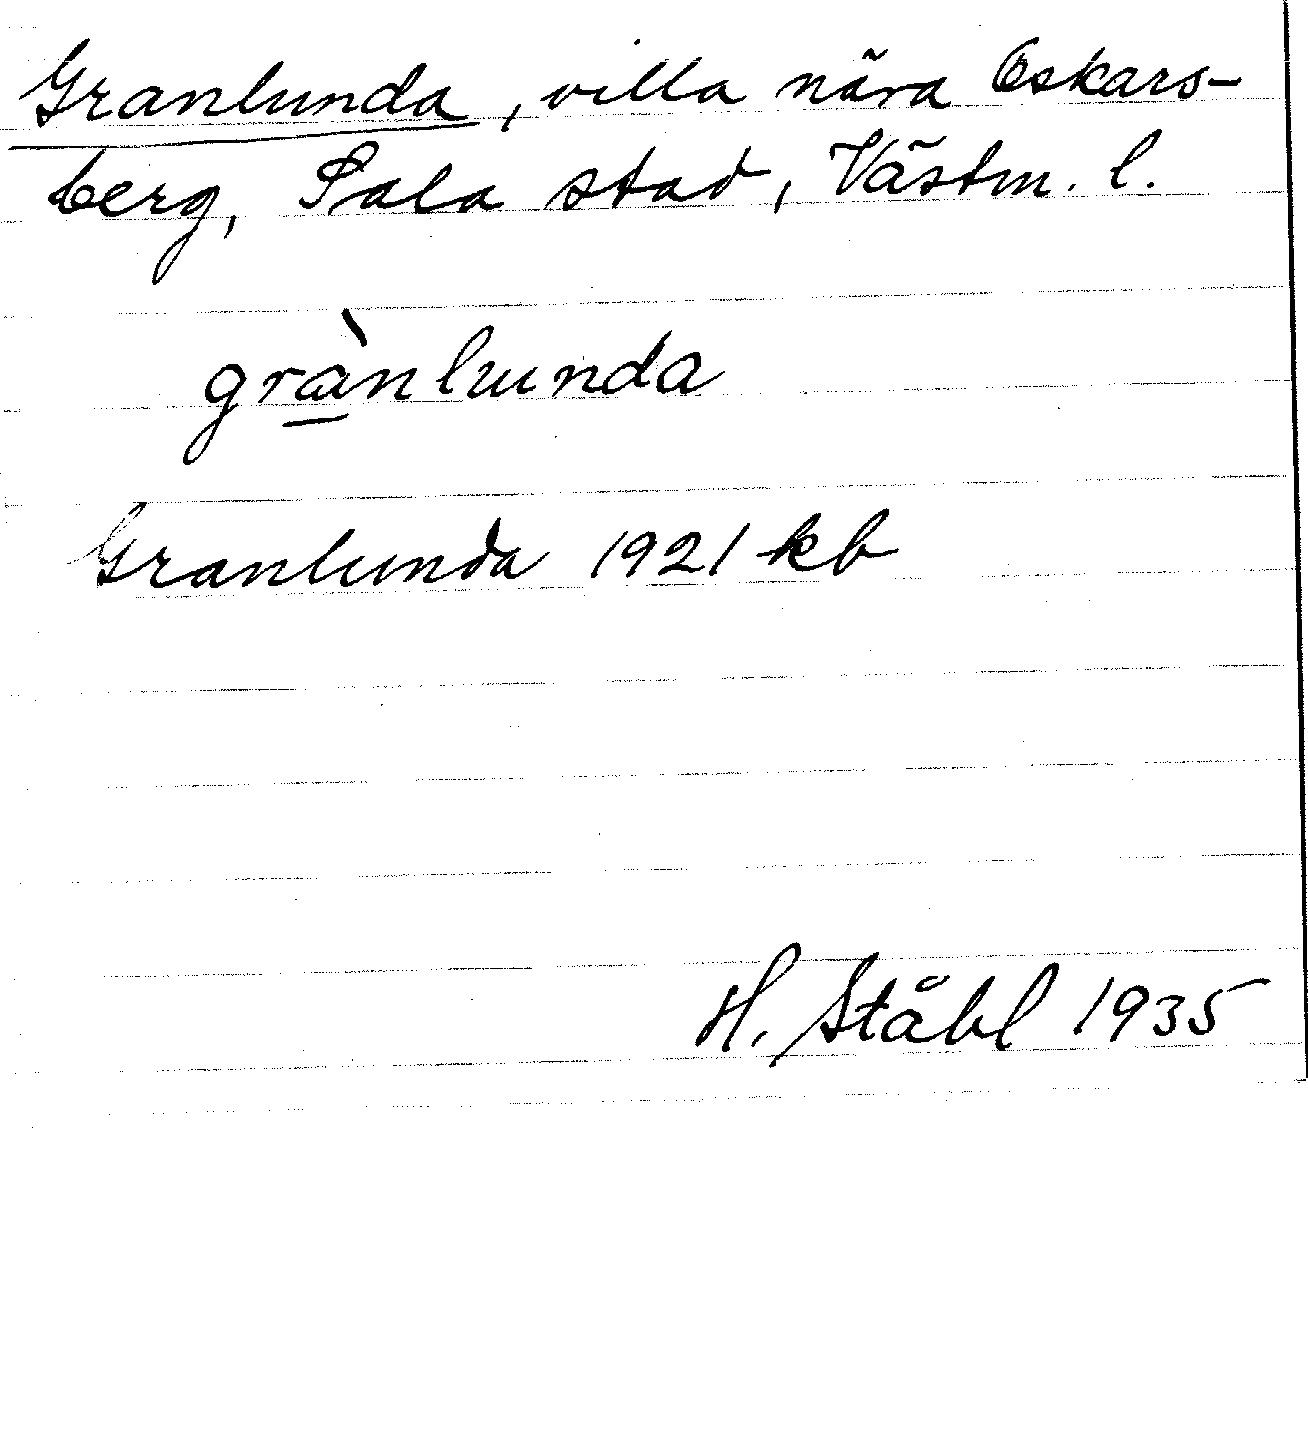 Granlunda, villa nära Oskars-
berg, Sala stad, Västm. l.
grànlunda
Granlunda 1921 kb
H. Ståhl 1935